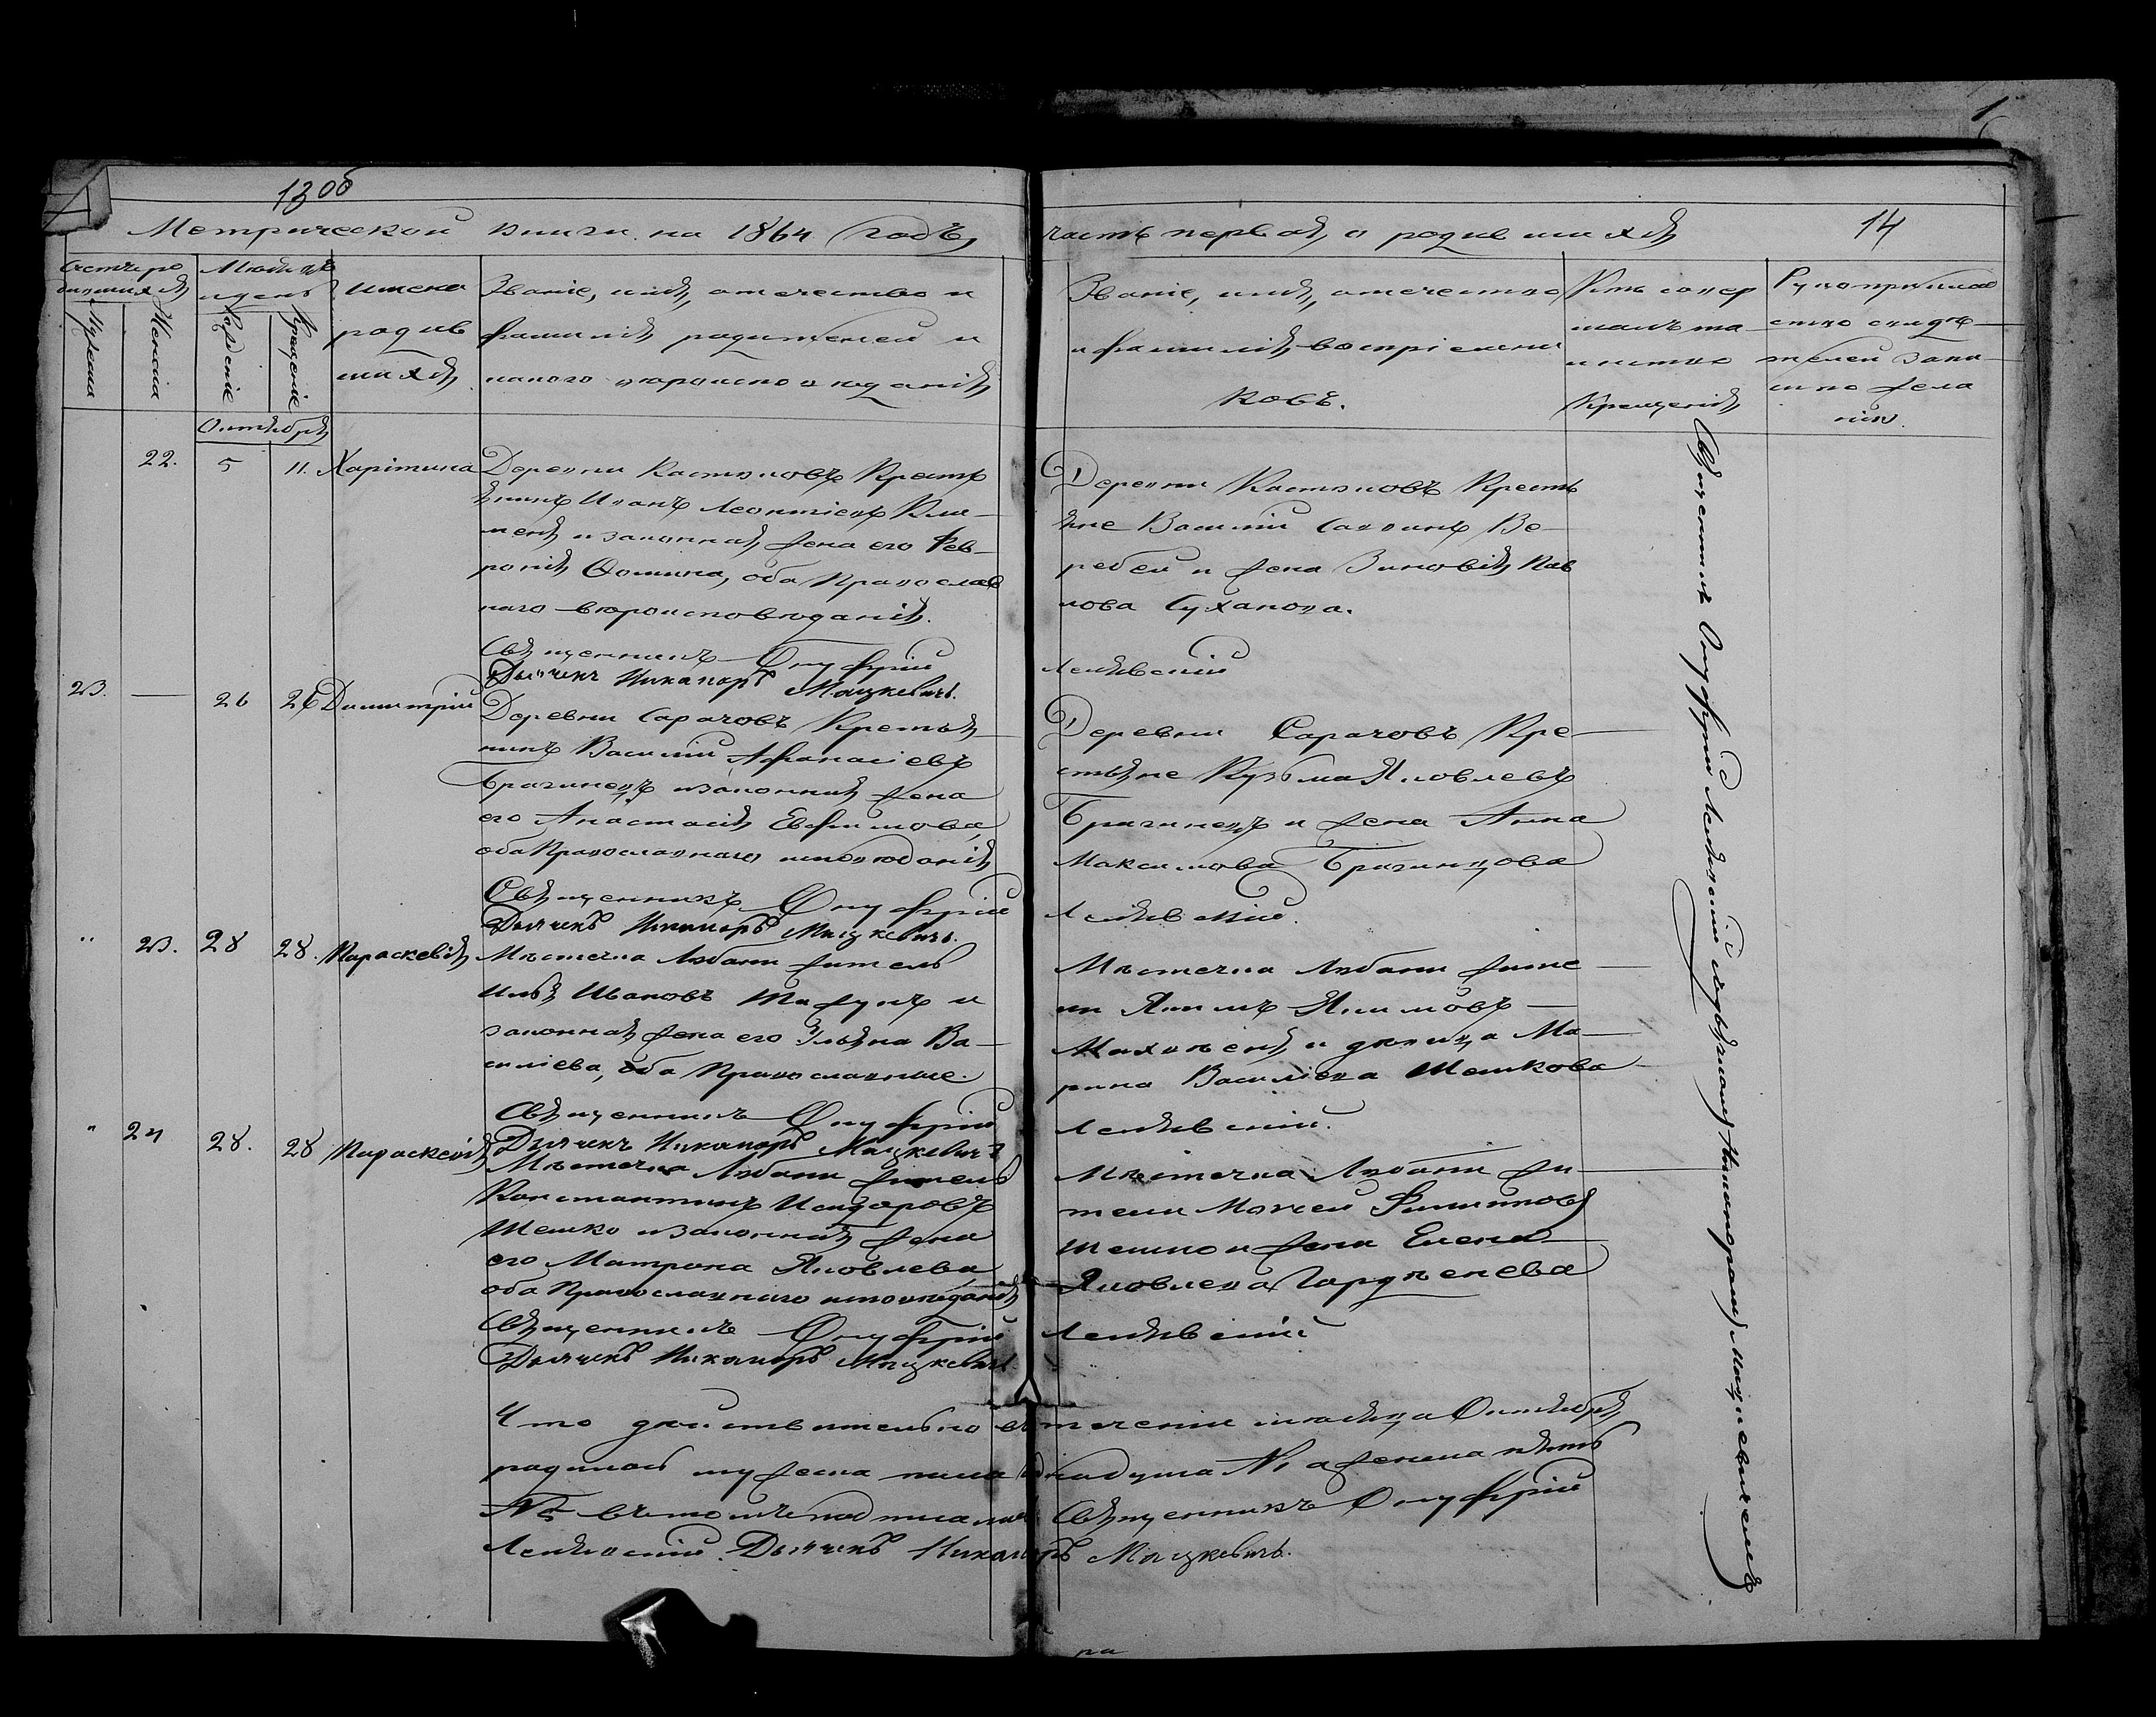 13об
Метрической книги на 1864 годъ,
часть первая, о родившихся
14
Счетъ ро
дившихся
Мужеска
Женска
Месяцъ
и день
Рожденіе
Крещеніе
имена
родив
шихся
Званіе, имя, отечество и
фамилія родителей и
какого вѣроисповѣданія
Званіе, имя, отечество
и фамилія воспріемни
ковъ.
Кто совер
шалъ та
инство
Крещенія
Рукоприклад
ство свидѣ
телей запи
си по жела
нію
Октября
22. 5 11. Харітина
Деревни Костюковъ Кресть
янинъ Иванъ Леонтіевъ Кли
меня и законная жена его Фев
ронія Фомина, оба Православ
наго вѣроисповѣданія.
Священникъ Онуфрій
Дьячекъ Никаноръ Мацкевичъ.
Деревни Костюковъ Кресть
яне Василій Саввинъ Ве
ребей и жена Зиновія Пав
лова Суханова.
23. — 26 26 Димитрій
Деревни Сарачовъ Крестья
нинъ Василій Афанасіевъ
Брагинецъ и законная жена
его Анастасія Евфимова
оба Православнаго исповѣданія
Священникъ Онуфрій
Дьячекъ Никаноръ Мацкевичъ.
Деревни Сарачовъ Кре
стьяне Кузьма Яковлевъ
Брагинецъ и жена Анна
Максимова Брагинцова
" 23. 28 28. Параскевія
Мѣстечка Любани житель
Илья Ивановъ и
законная жена его Ульяна Ва
силіева, оба Православные.
Священникъ Онуфрій
Дьячекъ Никаноръ Мацкевичъ
Мѣстечка Любани жите
ли Якимъ Якимовъ
и девица Ма
рина Василіева Шешкова
" 24 28. 28 Параскевія
Мѣстечка Любани житель
Константинъ Исидоровъ
Шешко и законная жена
его Матрона Яковлева
оба Православнаго исповѣданія
Священникъ Онуфрій
Дьячекъ Никаноръ Мацкевичъ
Мѣстечка Любани жи
тели Моисей Филиповъ
Шешко и жена Елена
Яковлева
Что действительно въ теченіи месяца Октября
родилось мужеска пола одна душа № 1 а женска пять
№ 5 въ томъ подписались Священникъ Онуфрій
Дьячекъ Никаноръ Мацкевичъ.
Священникъ Онуфрій съ дьячкомъ Никаноромъ Мацкевичемъ